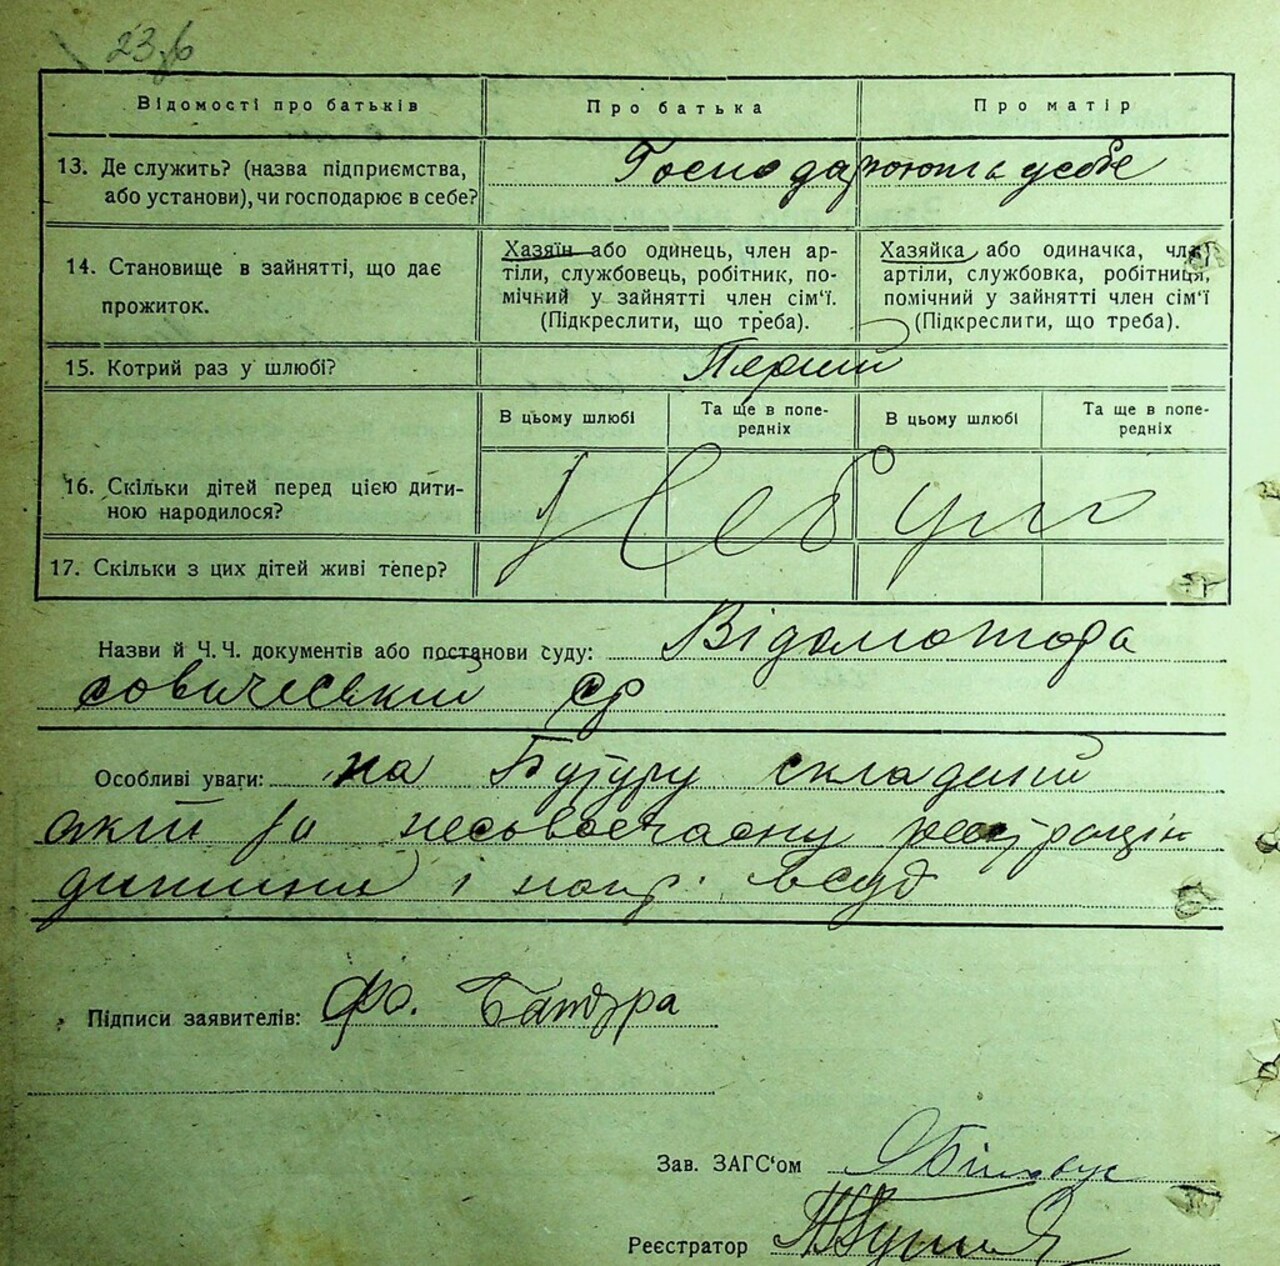 23зв
Відомості про батьків
Про батька
Про матір
13. Де служить? (назва підприємства,
або установи), чи господарює в себе?
Господарюють у себе
14. Становище в зайнятті, що дає
прожиток.
Хазяїн або одинець, член ар-
тіли, службовець, робітник, по-
мічний у зайнятті член сім‘ї.
(Підкреслити, що треба).
Хазяйка, або одиначка, член
артіли, службовка, робітниця,
помічний у зайнятті член сім‘ї
(Підкреслити, що треба).
15. Котрий раз у шлюбі?
Перший
В цьому шлюбі
Та ще в попе-
редніх
В цьому шлюбі
Та ще в попе-
редніх
16. Скільки дітей перед цією дити-
ною народилося?
Не було
17. Скільки з цих дітей живі тепер?
Назви й Ч. Ч. документів або постанови суду:
Особливі уваги: на складений
акт за несвоєчасну реєстрацію
дитини і напр. в суд
Підписи заявителів:
Зав. ЗАГС‘ом
Реєстратор